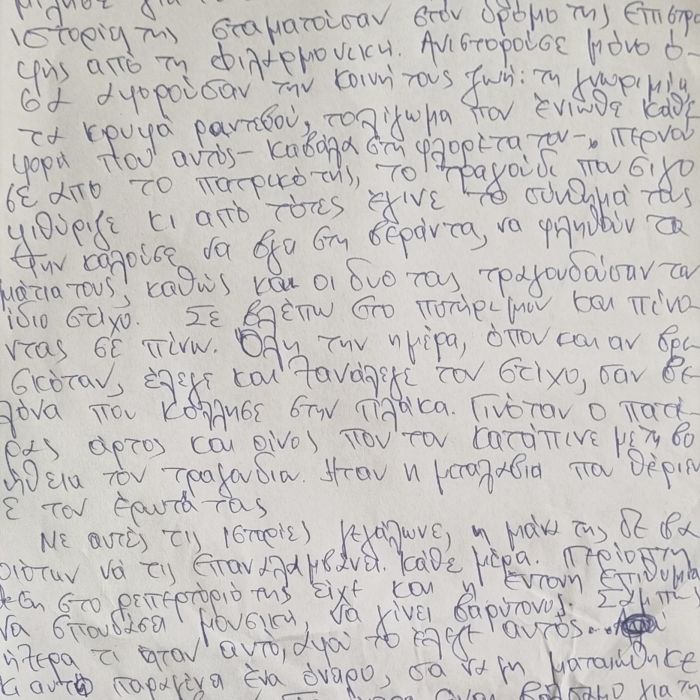 ιστορίη της σταματούσαν στον δρόμο της επιστρο
φής από τη φιλαρμονική. Ανιστορούσε μόνο ό-
σα αφορούσαν την κοινή τους ζωή: τη γνωριμία
τα κρυφά ραντεβού, το λίγωμα που ένιωθε κάθε
φορά που αυτός - καβάλα στη φλορέτα του - περνού
σε από το πατρικό της, το τραγούδι που σιγο
ψιθύριζε κι από τότες έγινε το σύνθημά τους
την καλούσε να βγει στη βεράντα, να φιληθούν τα
μάτια τους, καθώς και οι δυο τους τραγουδούσαν το
ίδιο στίχο. Σε βλέπω στο ποτήρι μου και πίνο
ντας σε πίνω. Όλη την ημέρα, όπου και αν βρι
σκόταν, έλεγε και ξανάλεγε τον στίχο, σαν βε
λόνα που κόλλησε στην πλάκα. Γινόταν ο πατέ
ρας άρτος και οίνος που τον κατάπινε με τη βο
ήθεια του τραγουδιού. Ήταν η μεταλαβιά που θέριευ
ε τον έρωτά τους
Με αυτές τις ιστορίες μεγάλωνε, η μάνα της δε βα
ριόταν να τις επαναλαμβάνει κάθε μέρα. Περίοπτη
θέση στο ρεπερτόριό της είχε και η έντονη επιθυμία
να σπουδάσει μουσική, να γίνει βαρύτονος.
τι ήταν αυτό, αφού το έλεγε αυτός
κι αυτό παρέμεινε ένα όνειρο, σα να μη ματαιώθηκε